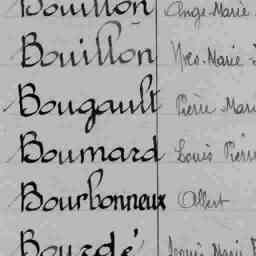 Bouillon Ange-Marie
Bouillon Yves-Marie
Bougault Pierre Mari
Boumard Louis Pierre
Bourbonneux Albert
Bourdé Louis Marie